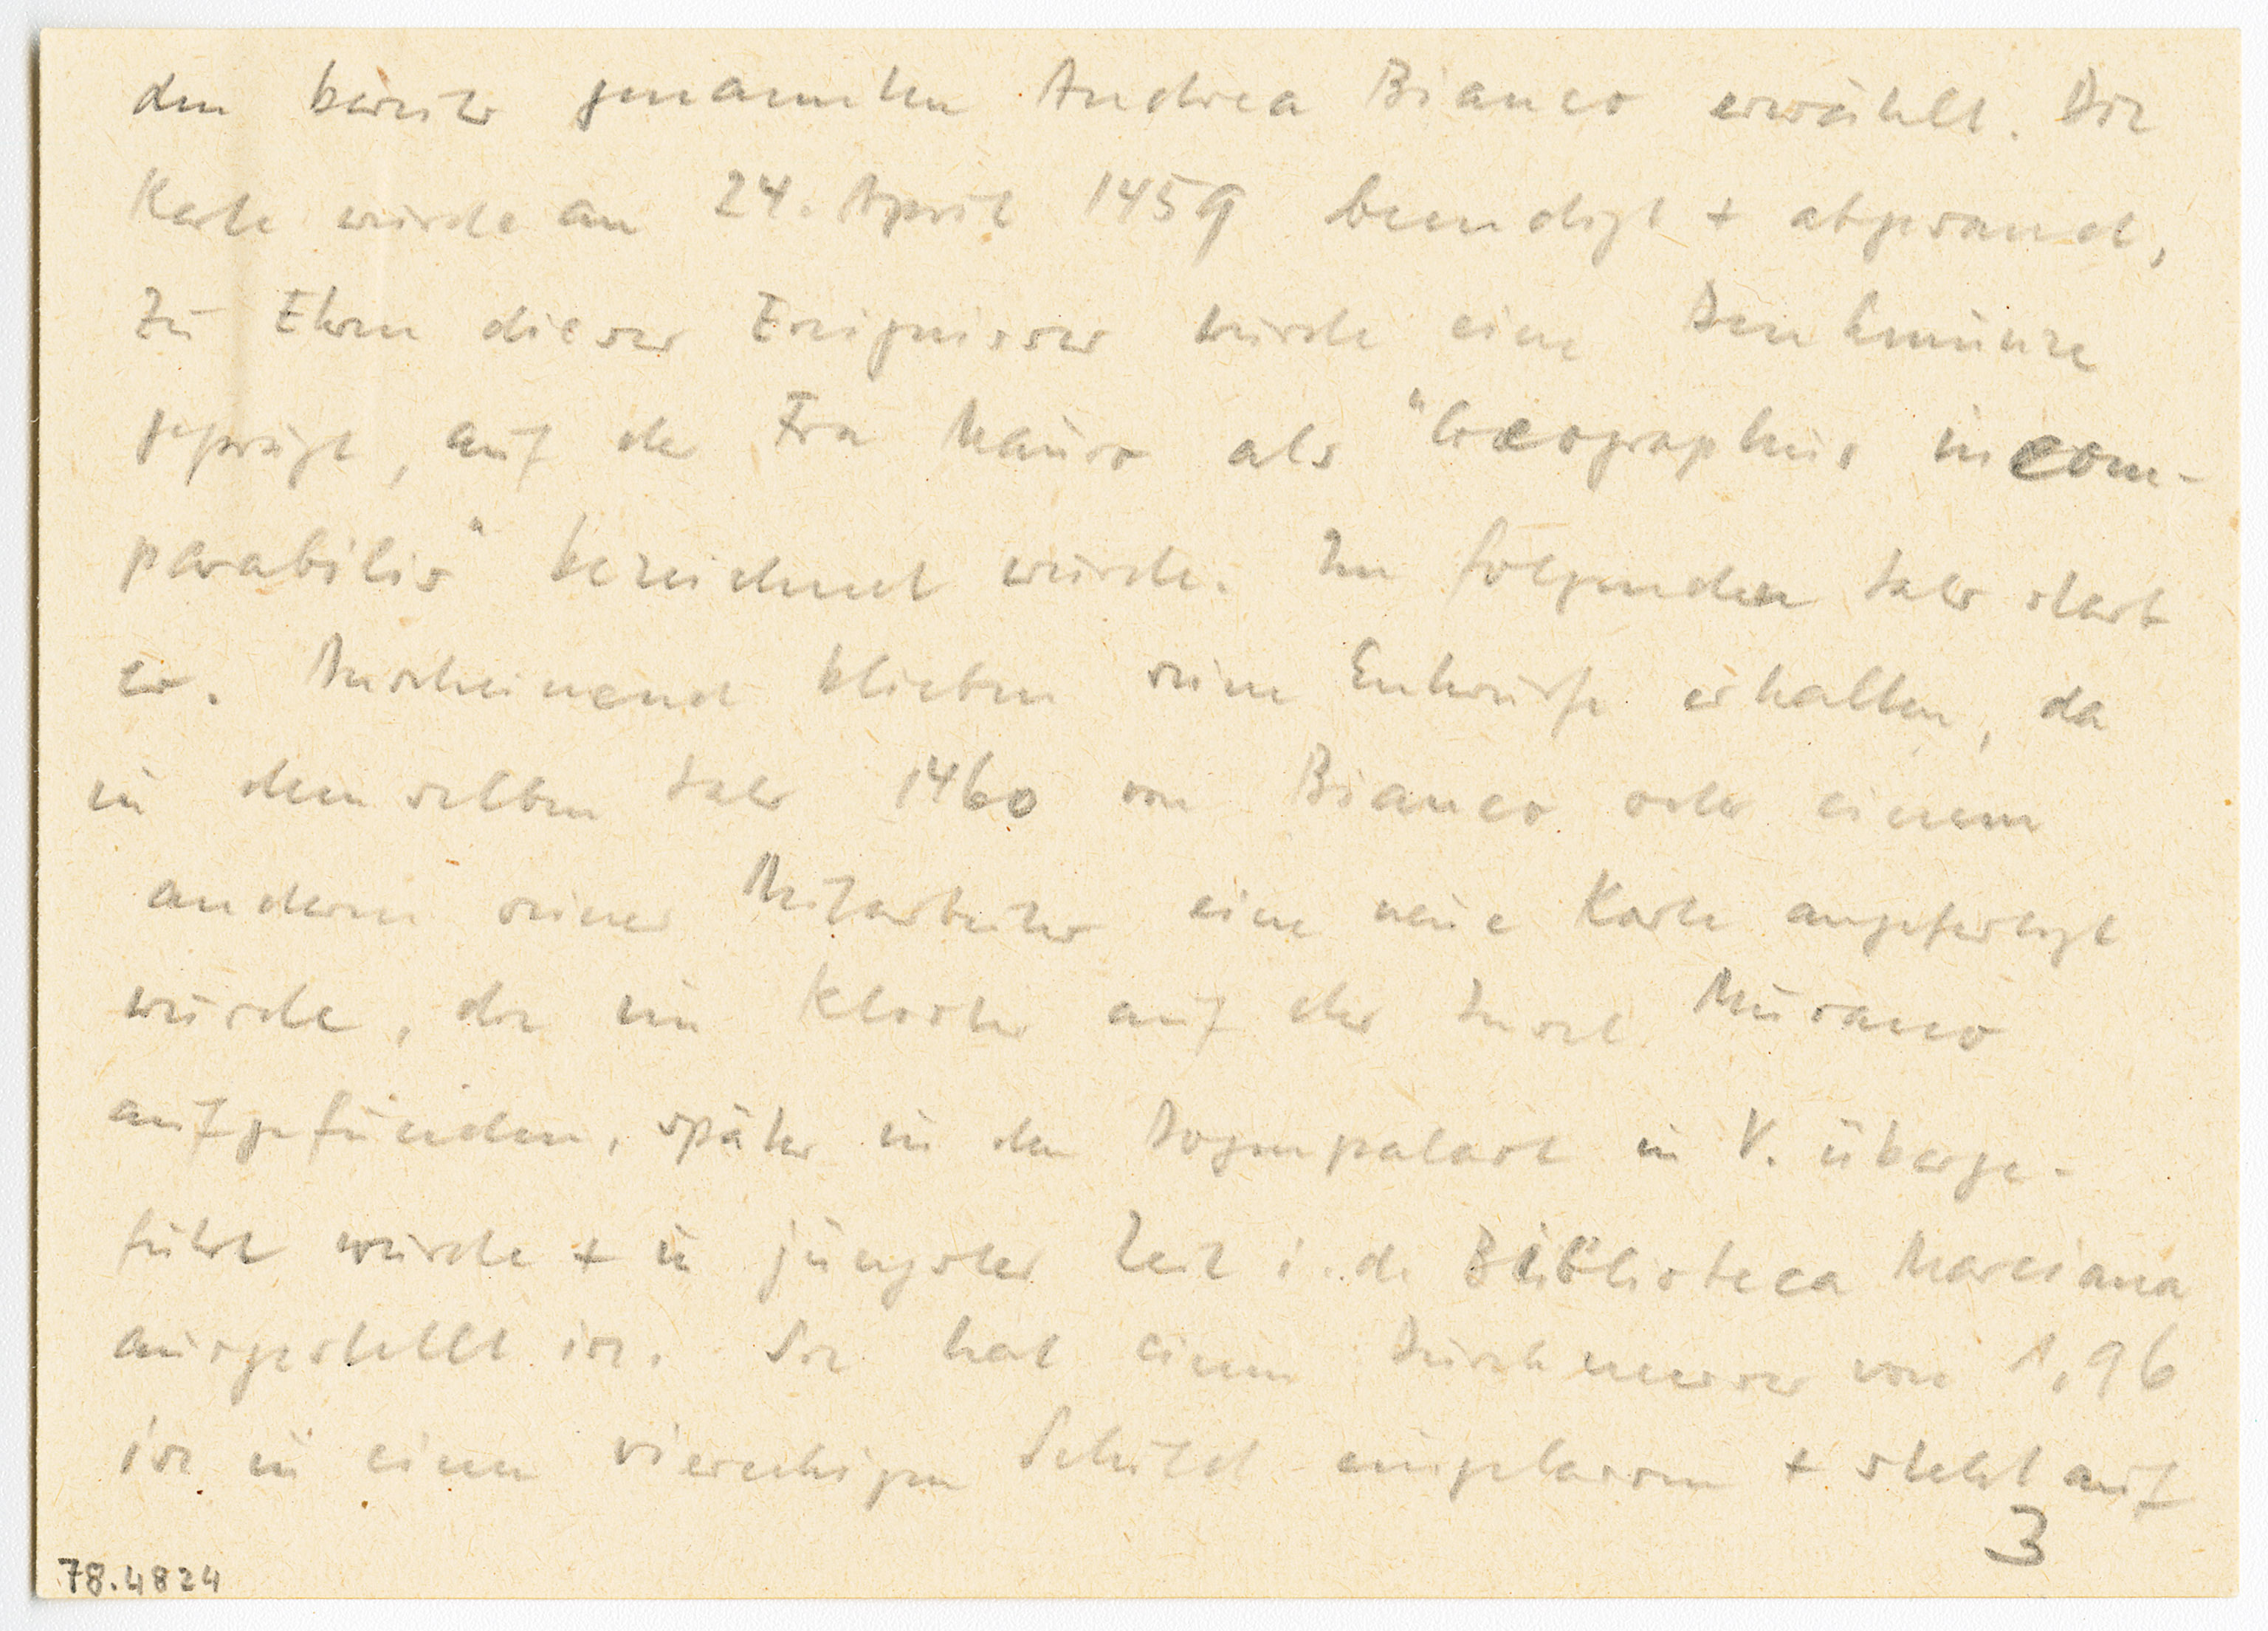 den bereits genannten Andrea Bianco erwählt. Die
Karte wurde am 24. April 1459 beendigt + abgesandt,
Zu Ehren dieses Ereignisses wurde eine Denkmünze
geprägt, auf der Fra Mauro als "Geographus incom-
parabilis" bezeichnet wurde. Im folgenden Jahr starb
er. Anscheinend blieben seine Entwürfe erhalten, da
in demselben Jahr 1460 von Bianco oder einem
anderen seiner Mitarbeiter eine neue Karte angefertigt
wurde, die im Kloster auf der Insel Murano
aufgefunden, später in den Dogenpalast in V. überge-
führt wurde + in jüngster Zeit i. d. Biblioteca Marciana
ausgestellt ist. Sie hat einen Durchmesser von 1,96
ist in einen viereckigen Schild eingelassen + steht auf
3
78.4824